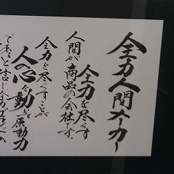 全力人間オカー
全力を尽くす
人間が商品の会社です
全力を尽くすことが
人の心を動かす原動力
であると信じ